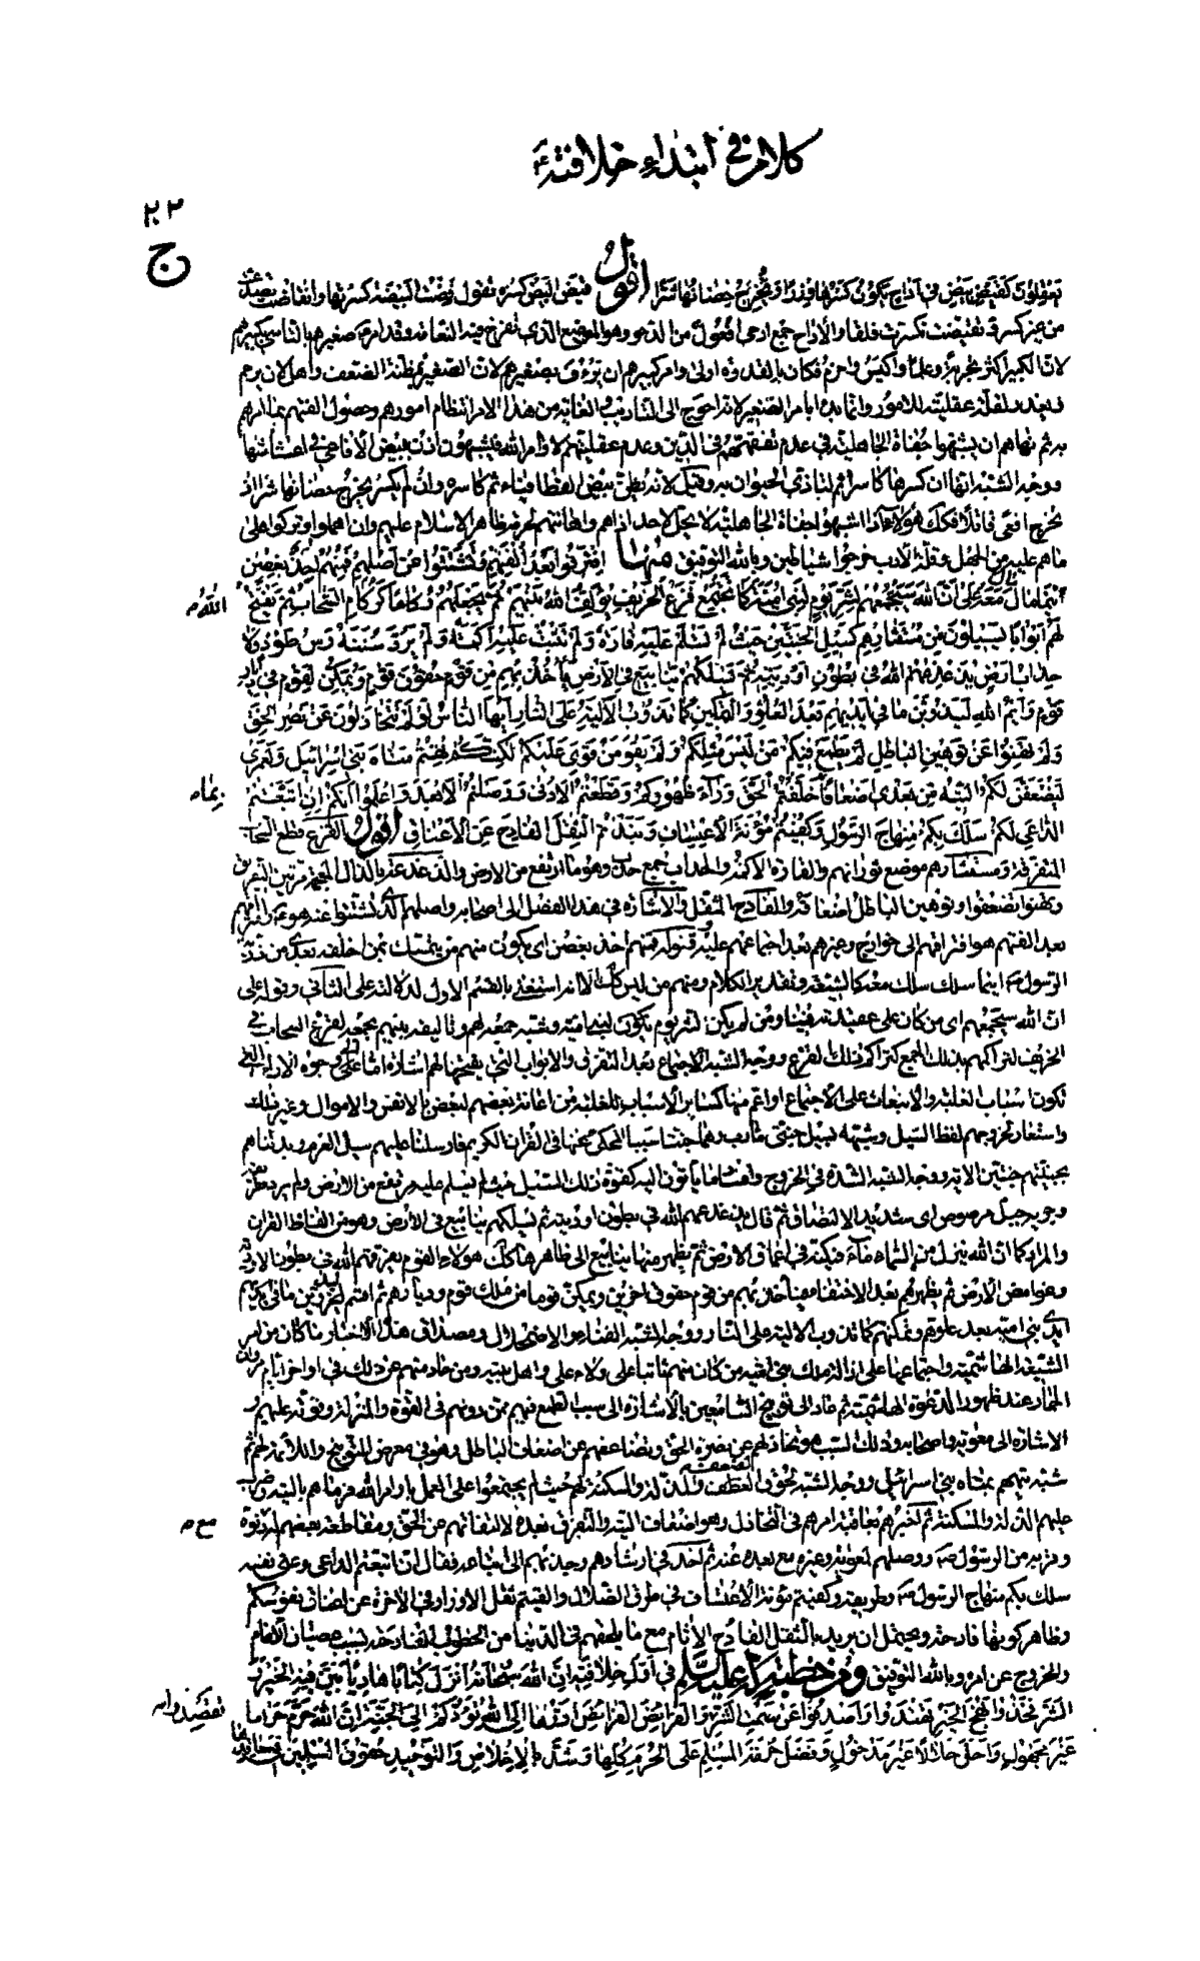 كلام في ابتداء خلافته ع
٢٠٣
ج
تعقلون كقيض بيض في اداح يكون كسرها وزرا ويخرج حضانها شرا اقول قيض البيض كسره تقول قضت البيضة كسرتها وانقاضت
من غير كسر وتقيضت تكسرت فلقا والأداح جمع ادحى افعول من الدحو وهو الموضع الذى تفرخ فيه النعامة وقد امر ع صغيرهم بالتأسى بكبيرهم
لان الكبير اكثر تجربة وعلما واكيس واحزم فكان بالقدوة اولى وامر كبيرهم ان يرؤف بصغيرهم لان الصغير بمظنة الضعف واهل لان يرحم
ويعذر لقلة عقليته للامور وانما بدء بامر الصغير لانه احوج الى التأديب والغاية من هذا الامر انتظام امورهم وحصول الفتهم بما امرهم
به ثم نهاهم ان يشبهوا جفاة الجاهلية في عدم تفقههم في الدين وعدم عقليتهم لاوامر الله فيشبهون اذن ببيض الأفاعى في اعشاشها
ووجه الشبه انها ان كسرها كاسر اثم لتأذى الحيوان به وقيل لانه يظن بيض القطا فيأثم كاسره وان لم يكسر يخرج حضانها شرا اذ
يخرج افعى قاتلا فكذلك هؤلاء اذا اشبهوا جفاة الجاهلية لا يحل لاحد اذاهم واهانتهم لحرمة ظاهر الاسلام عليهم وان اهملوا وتركوا على
ما هم عليه من الجهل وقلة الادب خرجوا شياطين وبالله التوفيق منها افترقوا بعد الفتهم وتشتتوا عن اصلهم فمنهم اخذ بغصن
اينما مال مال معه على ان الله سيجمعهم لشر يوم لبنى امية كما تجتمع قزع الخريف يؤلف الله بينهم ثم يجعلهم ركاما كركام السحاب ثم يفتح الله م
لهم ابوابا يسيلون من مستثارهم كسيل الجنتين حيث لم تسلم عليه قارة ولم تثبت عليه اكمة ولم يرد سننه رص طود ولا
حداب ارض يذعذعهم الله في بطون اوديته ثم يسلكهم ينابيع في الأرض يأخذ بهم من قوم حقوق قوم ويمكن لقوم في ديار
قوم وايم الله ليذوبن ما في ايديهم بعد العلو والتمكين كما تذوب الألية على النار ايها الناس لو لم تتخاذلوا عن نصر الحق
ولم تهنوا عن توهين الباطل لم يطمع فيكم من ليس مثلكم ولم يقو من قوى عليكم لكنكم تهتم متاه بنى اسرائيل ولعمرى
ليضعفن لكم التيه من بعدى اضعافا خلفتم الحق وراء ظهوركم وقطعتم الأدنى ووصلتم الأبعد واعلموا انكم ان اتبعتم بما م
الداعى لكم سلك بكم منهاج الرسول وكفيتم مؤنة الأعتساف ونبذتم الثقل الفادح عن الأعناق اقول القزع قطع السحاب
المتفرقة ومستثارهم موضع ثورانهم والقارة الاكمة والحداب جمع حدب وهو ما ارتفع من الارض والذعذعة بالذال المعجمة مرتين التفريق
وتهنوا تضعفوا وتوهين الباطل اضعافه والفادح المثقل والأشارة في هذا الفصل الى اصحابه واصلهم الذى تشتتوا عنه هو ع وافتراقهم
بعد الفتهم هو افتراقهم الى خوارج وغيرهم بعد اجتماعهم عليه وقوله فمنهم اخذ بغصن اى يكون منهم من يتمسك بمن اخلفه بعدى من ذرية
الرسول ص اينما سلك سلك معه كالشيعة وتقدير الكلام ومنهم من ليس كذلك الا انه استغنى بالقسم الاول لدلالته على الثانى وقوله على
ان الله سيجمعهم اى من كان على عقيدته فينا ومن لم يكن لشر يوم يكون لبنى امية وشبه جمعه لهم وتاليفه بينهم بجمعه لقزع السحاب في
الخريف لتراكمهم بذلك الجمع كتراكم ذلك القزع ووجه الشبه الاجتماع بعد التفرق والابواب التى يفتحها لهم اشارة اما الى وجوه الاراء التى
تكون اسباب الغلبة والأنبعاث على الأجتماع او اعم منها كسائر الأسباب للغلبة من اعانة بعضهم لبعض بالانفس والاموال وغير ذلك
واستعار لخروجهم لفظ السيل وشبهه بسيل جنتى مأرب وهما جنتا سبا المحكى عنها في القران الكريم فارسلنا عليهم سيل العرم وبدلناهم
بجنتيهم جنتين الاية ووجه الشبه الشدة في الخروج وافساد ما يأتون اليه كقوة ذلك السيل حيث لم يسلم عليه مرتفع من الارض ولم يرد طريقه
وجريه جبل مرصوص اى شديد الالتصاق ثم قال يذعذعهم الله في بطون اوديته ثم يسلكهم ينابيع في الأرض وهو من الفاظ القران
والمراد كما ان الله ينزل من السماء ماء فيكنه في اعماق الارض ثم يظهر منها ينابيع الى ظاهرها كذلك هؤلاء القوم يفرقهم الله في بطون الاودية
وغوامض الأرض ثم يظهرهم بعد الاختفاء فيأخذ بهم من قوم حقوق اخرين ويمكن قوما من ملك قوم وديارهم ثم اقسم ليذوبن ما في ايديهم
ايدى بنى امية بعد علوهم وتمكنهم كما تذوب الالية على النار ووجه الشبه الفناء والاضمحلال ومصداق هذا الأخبار ما كان من امر
الشيعة الهاشمية واجتماعها على ازالة ملك بنى امية من كان منهم ثابتا على ولاء على واهل بيته ومن حاد منهم عن ذلك في اواخر ايام مروان
الحمار عند ظهور الدعوة الهاشمية ثم عاد الى توبيخ السامعين بالأشارة الى سبب الطمع فيهم ممن دونهم في القوة والمنزلة وقوته عليهم و
الاشارة الى معوية واصحابه وذلك السبب هو تخاذلهم عن نصرة الحق وتضاعفهم عن اضعاف الباطل وهو في معرض التوبيخ واللائمة لهم ثم
شبه تيههم بمتاه بنى اسرائيل ووجه الشبه لحوق الضعف والمذلة والمسكنة لهم حيث لم يجتمعوا على العمل باوامر الله فرماهم بالتيه وضرب
عليهم الذلة والمسكنة ثم اخبرهم بعاقبة امرهم في التخاذل وهو اضعاف التيه والتفرق بعده لالتفاتهم عن الحق ومقاطعة بعضهم له لدنوه مع م
وقربه من الرسول ص ووصلهم لمعوية وغيره مع بعده عنه ثم اخذ في ارشادهم وجذبهم الى اتباعه فقال ان اتبعتم الداعى وعنى نفسه
سلك بكم منهاج الرسول ص وطريقه وكفيتم مؤنة الأعتساف في طرق الضلال والقيتم ثقل الاوزار في الاخرة عن اعناق نفوسكم
وظاهر كونها فادحة ويحتمل ان يريد بالثقل الفادح الأثام مع ما يلحقهم في الدنيا من الخطوب الفادحة بسبب عصيان الأمام
والخروج عن امره وبالله التوفيق ومن خطبة له عليه السلم في اول خلافته ان الله سبحانه انزل كتابا هاديا بين فيه الخير و
الشر فخذوا نهج الخير تهتدوا واصدفوا عن سمت الشر تقصدوا الفرائض الفرائض ادوها الى الله تؤدكم الى الجنة ان الله حرم حراما
غير مجهول واحل حلالا غير مدخول وفضل حرمة المسلم على الحرم كلها وشد بالاخلاص والتوحيد حقوق المسلمين في معاقدها